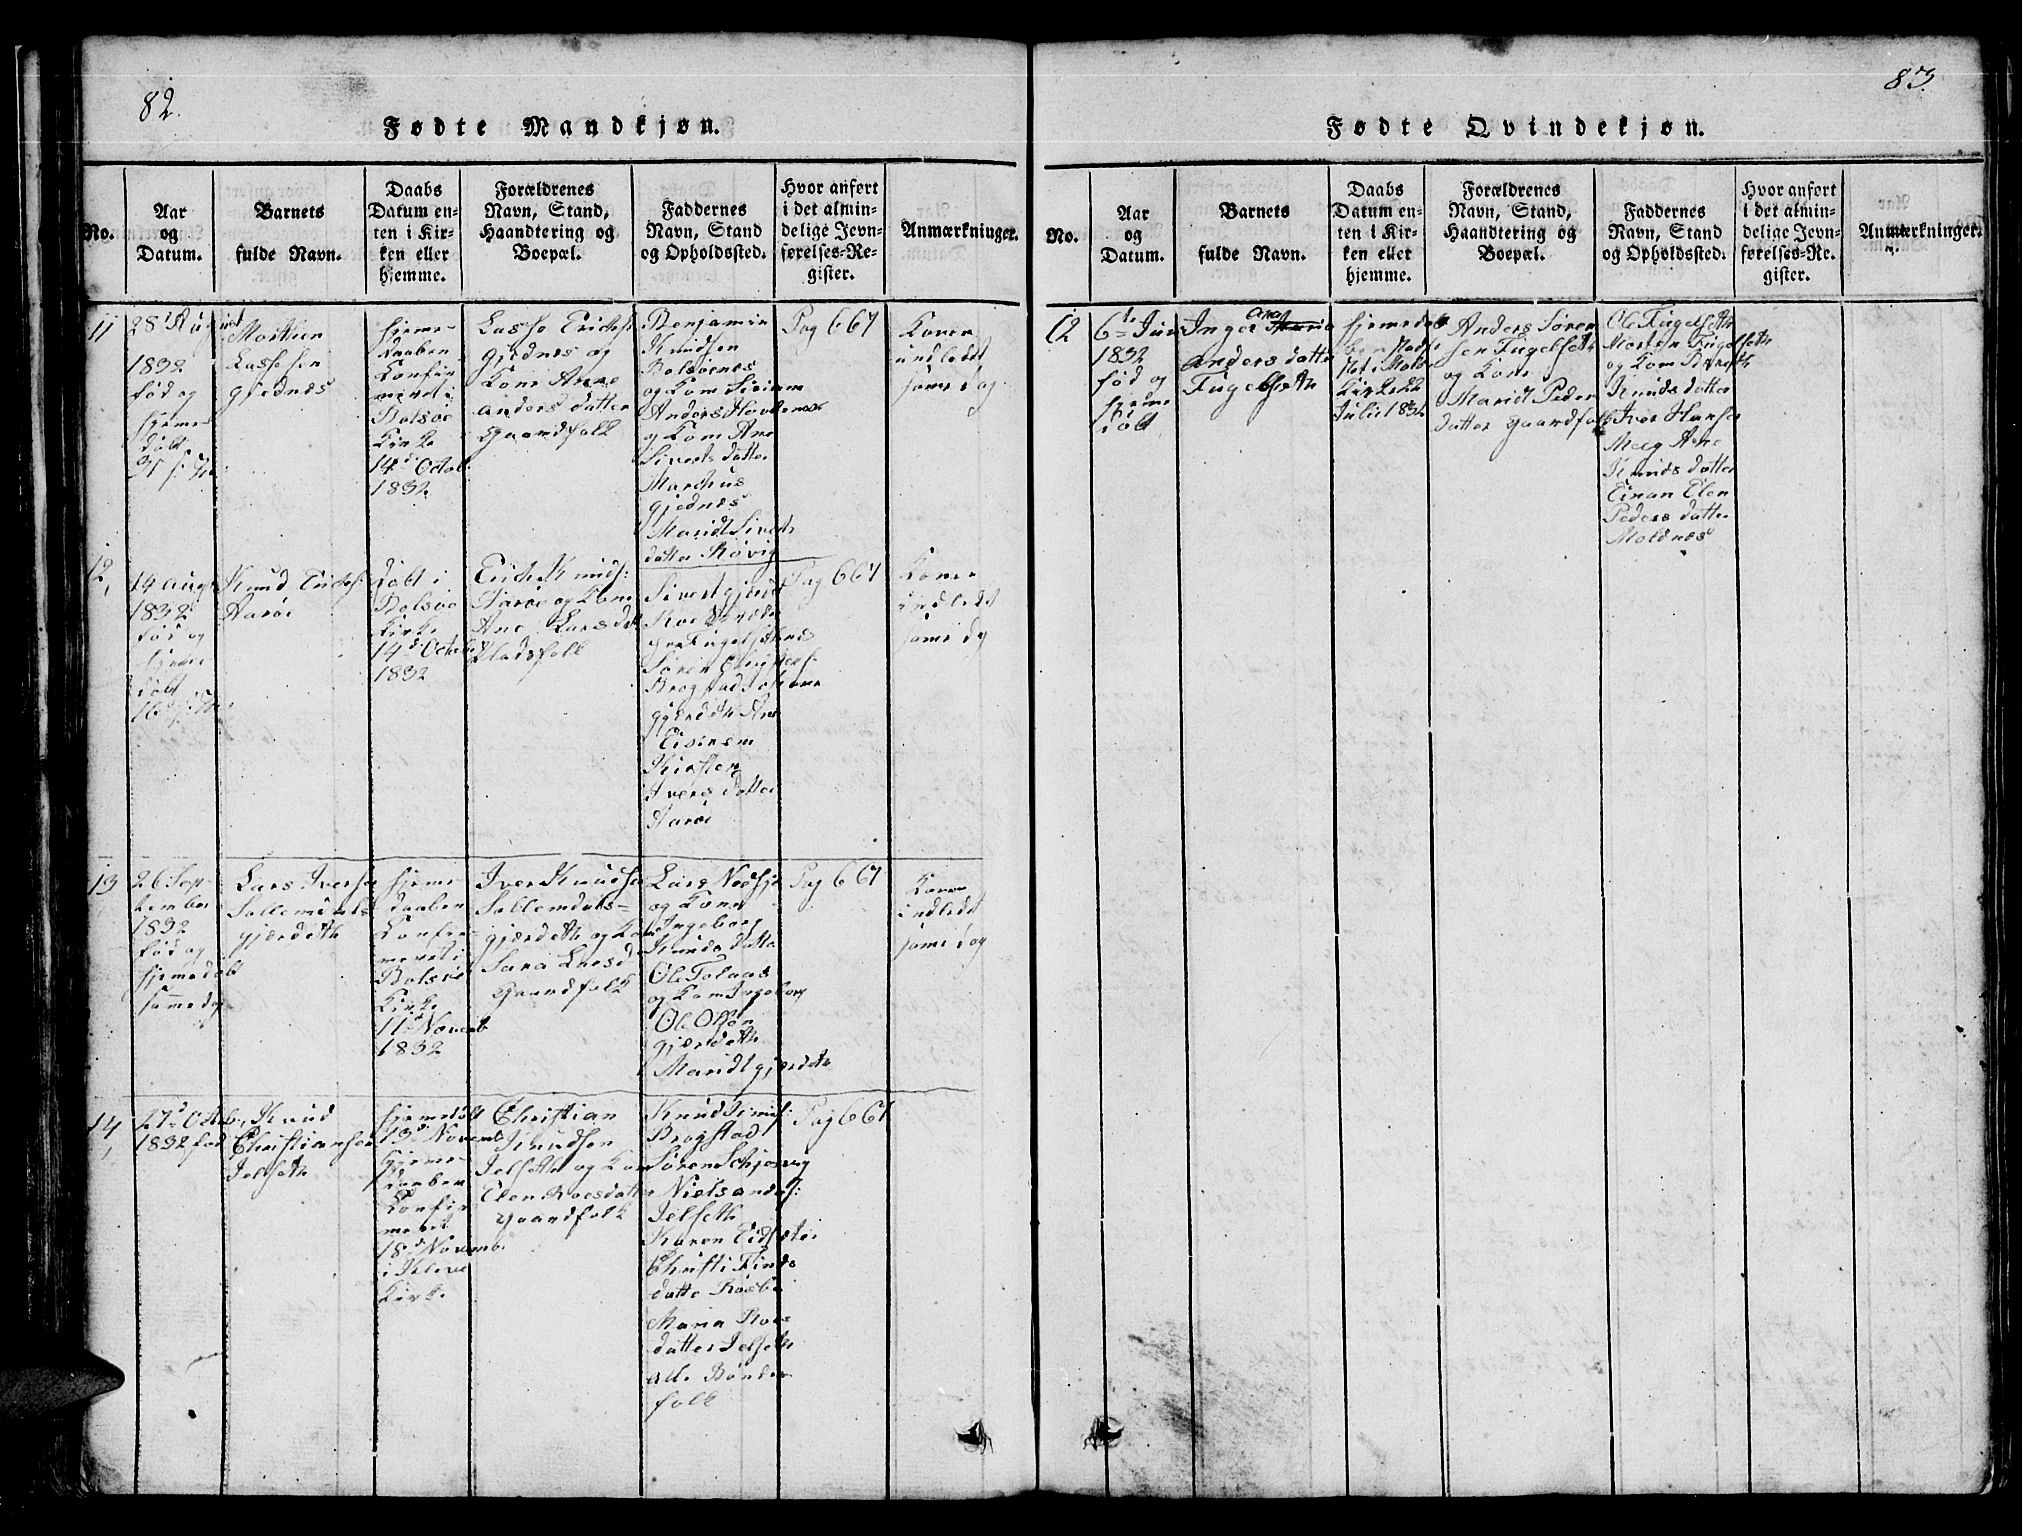 82.
Fødte Mandkjøn.
No.
Aar
og
Datum.
Barnets
fulde Navn.
Daabs
Datum en-
ten i Kir-
ken eller
hjemme.
Forældrenes
Navn, Stand,
Haandtering og
Boepæl.
Faddernes
Navn, Stand
og Opholdssted.
Hvor anført
i det almin-
delige Jevn-
førelses-Re-
gister.
Anmærkninger.
11
28 August
1832
fød og
hjeme
døbt
31
Morthen
Lassesen
gjednes
hjeme-
daaben
Confir
meret i
Bolsøe
Kirke
14d Octob
1832
Lasse Erichs:
gjednes og
Kone Anne
anders datter
gaardfolk
Benjamin
Knudsen
Bolsvenes
og Kone
Anders Hovdenes
og Kone Ane
Siverts datter
Marchus
gjednes
Maridt Siverts
datter Røvig
Pag 667
Konen
indledt
same dag
12,
14 aug
1832
fød og
hjeme
døbt
16
Knud Erichs:
Aarøe
Døbt i
Bolsøe
Kirke
14d Octob
1832
Erich Knuds:
Aarøe og Kone
Ane Larsdat
Pladsfolk
Sivert gjerdet
Søren Christens:
Brogstad
gjerdeth Ane
Eisirem
Kirsten
Ivers datter
Aarøe
Pag 667
Konen
indledt
same dag
13
26 Sep-
tember
1832
fød og
hjemedøbt
samedag
Lars Iversen
Sollemdals
gjerdeth
hjeme-
daaben
Confir-
meret i
Bolsøe
Kirke
11d Novemb
1832
Iver Knudsen
Sollemdals-
gjærdeth og Kone
Sara Larsd
gaardfolk
Lars Nedsje
og Kone
Ingeborg
Knuds datter
Ole Tolaas
og Kone Ingeborg
Ole Olsøn
gjerdeth
Maridt gjerdeth
Pag 667
Konen
indledt
same dag
14,
27d Octob.
1832 fød
Knud
Christiansen
Jelseth
hjemedøbt
13d Novemb
hjeme-
daaben
Confir
meret
18d Novemb
i Kleve
Kirke
Christian
Knudsen
Jelseth og Kone
Elen Roesdatter
gaardfolk
Knud Knuds:
Brogstad
Søren Schjørsvig
Niels anders:
Jelseth
Karen Eidsæter
Christi Finds
datter Røsbe
Maria Roes
datter Jelseth
alle Bønder
folk
Pag 667
83.
Fødte Qvindekjøn.
No.
Aar
og
Datum.
Barnets
fulde Navn.
Daabs
Datum en-
ten i Kir-
ken eller
hjemme.
Forældrenes
Navn, Stand,
Haandtering og
Boepæl.
Faddernes
Navn, Stand
og Opholdssted.
Hvor anført
i det almin-
delige Jevn-
førelses-Re-
gister.
Anmærkninger.
12
6te Juni
1832
fød og
hjeme
døbt
Ane
Inger Maria
anders datter
Fugelseth
hjemedaab
en Stadfe
stet i Molde
Kirke 22
Julii 1832
Anders Søren
sen Fugelseth
og Kone
Maridt Peder
datter gaardfolk
Ole Fugelseth
Morten Fugelseth
og Kone Bereth
Knuds datter
Iver Hansen
Meeg Ane
Knuds datter
Einan Elen
Peders datter
Moldnes